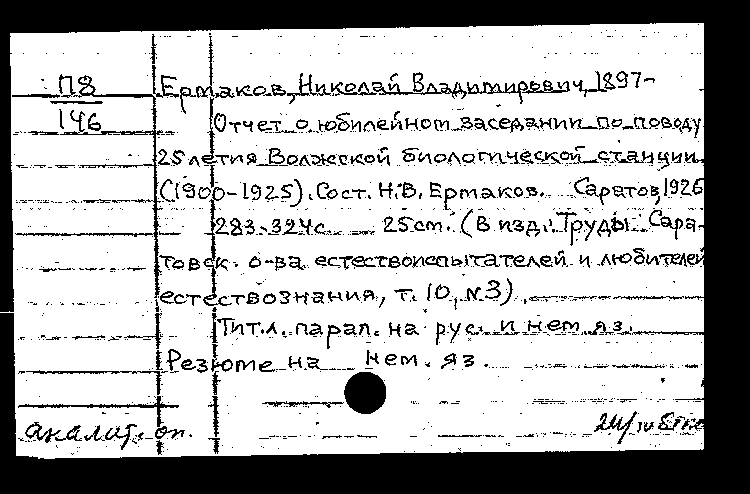 П8
146
Ермаков, Николай Владимирович, 1897-
Отчет о юбилейном заседании по поводу
25летия Волжской биологической станции
(1900-1925). Сост. Н.В. Ермаков. Саратов, 1926
283-324с 25cm. (В изд.: Труды Сара-
товск. о-ва естествоиспытателей и любителей
естествознания, т. 10, N3).
Тит.л. парал. на рус. и нем. яз.
Резюме на нем. яз.
аналит. оп.